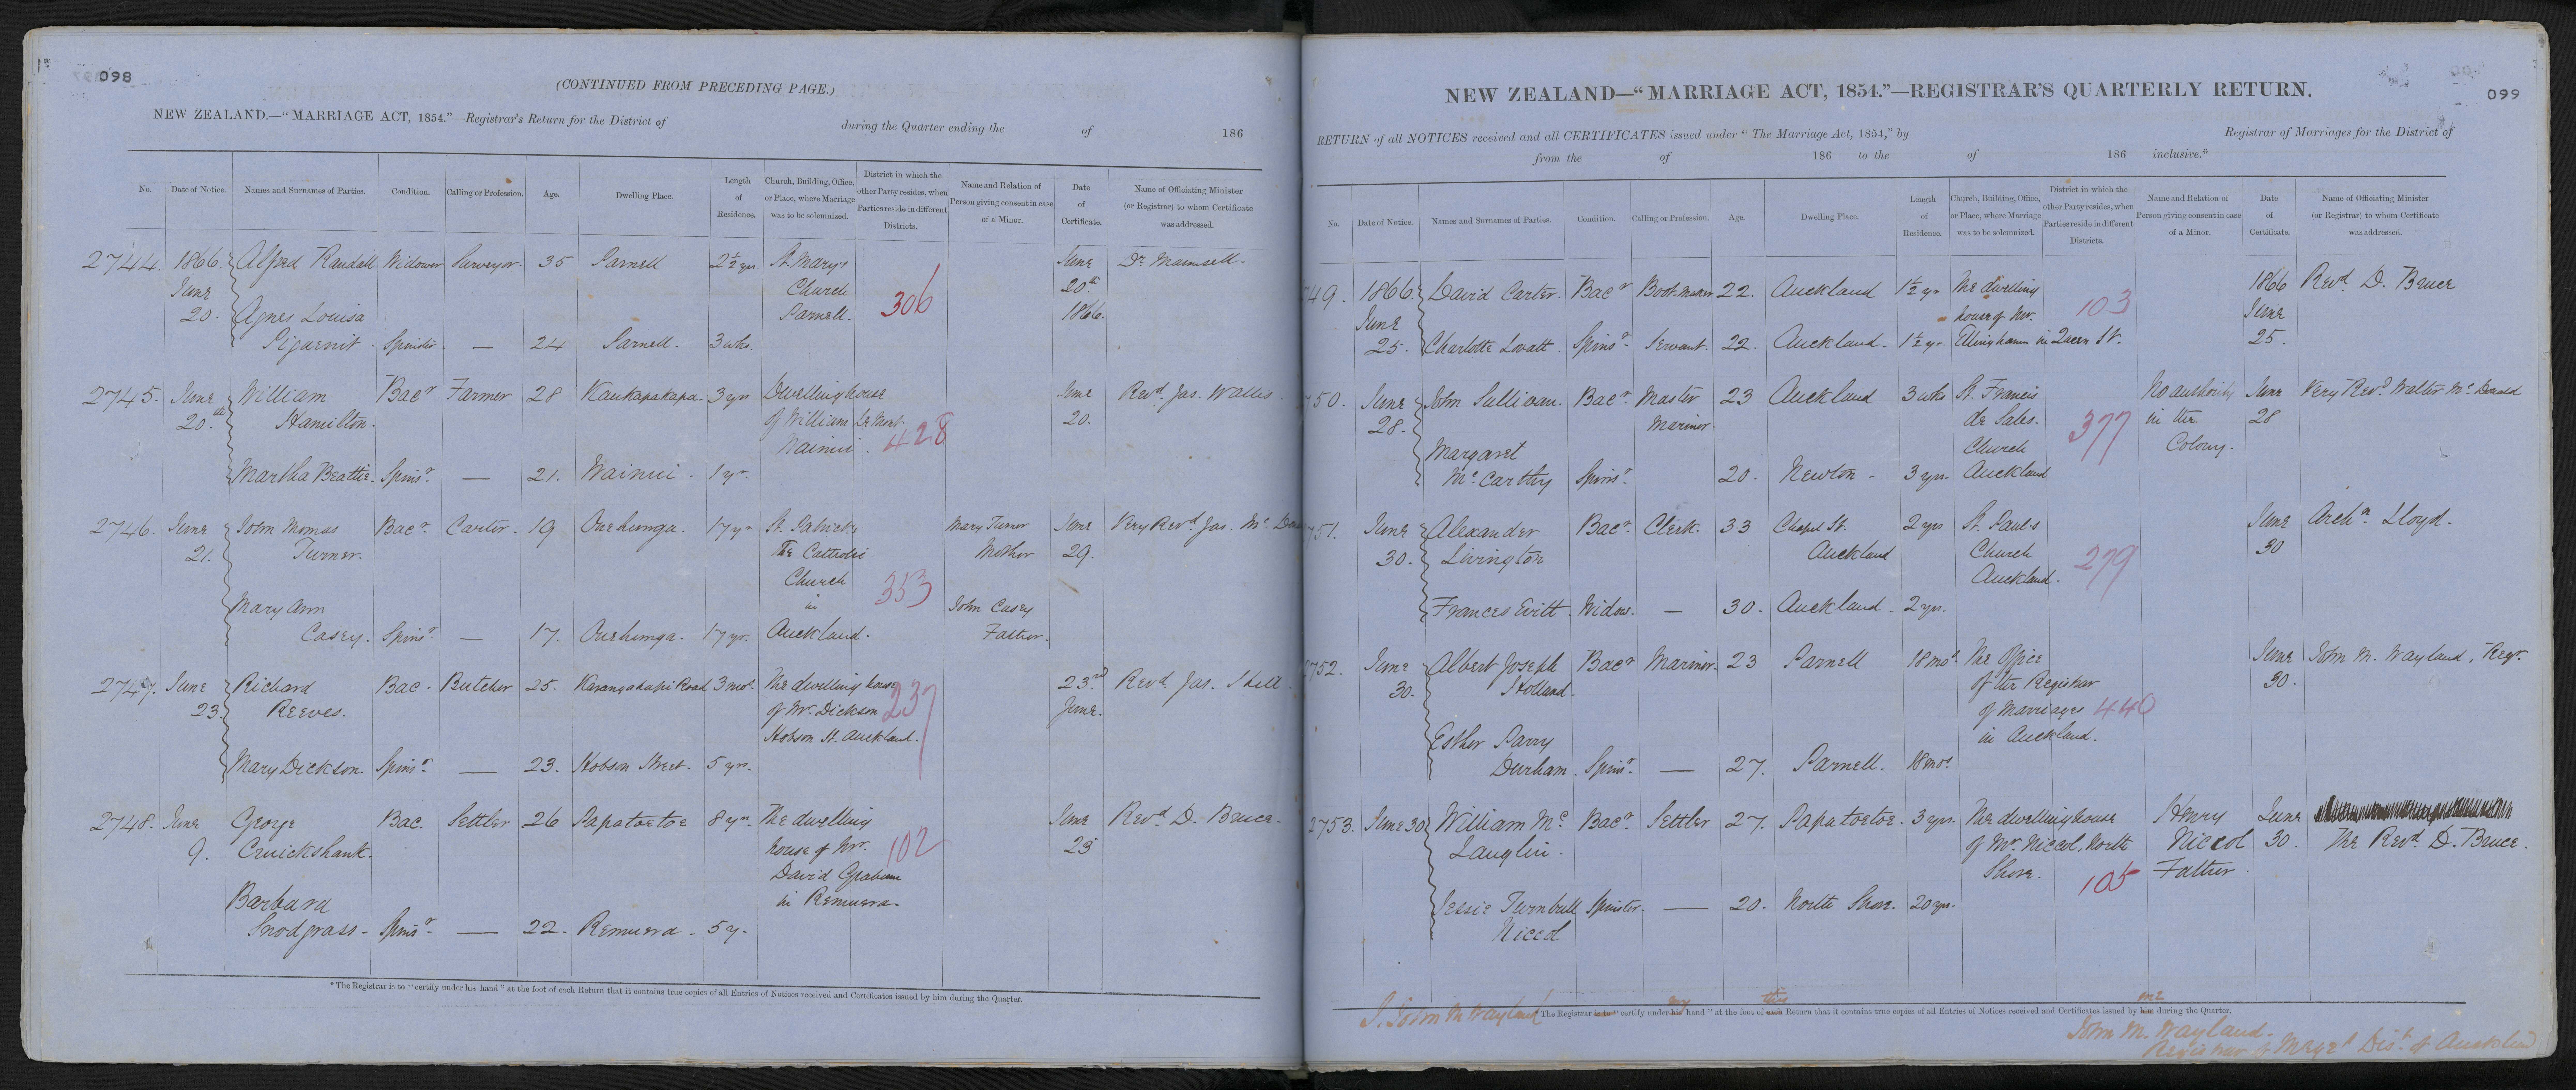 098
(CONTINUED FROM PRECEDING PAGE.)
NEW ZEALAND.—"MARRIAGE ACT, 1854."—Registrar's Return for the District of during the Quarter ending the of 186
No. Date of Notice. Names and Surnames of Parties. Condition. Calling or Profession. Age. Dwelling Place. Length of Residence. Church, Building, Office, or Place, where Marriage was to be solemnized. District in which the other Party resides, when Parties reside in different Districts. Name and Relation of Person giving consent in case of a Minor. Date of Certificate. Name of Officiating Minister (or Registrar) to whom Certificate was addressed.
2744. 1866. Alfred Randall Widower Surveyor. 35 Parnell 2½ yrs. St. Mary's June Dr. Maunsell.
June Church 20th
20. Agnes Louisa Parnell. 306 1866.
Piguenit. Spinster. — 24 Parnell. 3 wks.
2745. June William Bacr Farmer 28 Kaukapakapa. 3 yrs Dwelling house June Revd. Jas. Wallis.
20th Hamilton. of William 20.
Wainui. 428
Martha Beattie. Spinsr. — 21. Wainui. 1 yr.
2746. June John Thomas Bacr. Carter. 19 Onehunga. 17 yrs St. Patricks Mary Turner June Very Revd Jas. Mc.
21. Turner. The Catholic Mother 29.
Church 353
Mary Ann in John Casey
Casey. Spinsr. — 17. Onehunga. 17 yr. Auckland. Father.
2747. June Richard Bac. Butcher 25. Karangahapi Road 3 mos. The dwelling house 23rd Revd. Jas. Hill.
23. Reeves. of Mr. Dickson 237 June.
Hobson St. Auckland.
Mary Dickson. Spinsr. — 23. Hobson Street. 5 yrs.
2748. June George Bac. Settler 26 Papatoetoe 8 yrs. The dwelling June Revd. D. Bruce.
9. Cruickshank. house of Mr. 102 23
David Graham
Barbara in Remuera.
Snodgrass. Spinsr. — 22. Remuera. 5 y.
* The Registrar is to "certify under his hand" at the foot of each Return that it contains true copies of all Entries of Notices received and Certificates issued by him during the Quarter.
099
NEW ZEALAND—"MARRIAGE ACT, 1854."—REGISTRAR'S QUARTERLY RETURN.
RETURN of all NOTICES received and all CERTIFICATES issued under "The Marriage Act, 1854," by Registrar of Marriages for the District of
from the of 186 to the of 186 inclusive.*
No. Date of Notice. Names and Surnames of Parties. Condition. Calling or Profession. Age. Dwelling Place. Length of Residence. Church, Building, Office, or Place, where Marriage was to be solemnized. District in which the other Party resides, when Parties reside in different Districts. Name and Relation of Person giving consent in case of a Minor. Date of Certificate. Name of Officiating Minister (or Registrar) to whom Certificate was addressed.
749. 1866. David Carter. Bacr Boot-maker 22. Auckland 1½ yr The dwelling 1866 Revd. D. Bruce
June house of Mr. 103 June
25. Charlotte Lovatt. Spinsr. Servant. 22. Auckland. 1½ yr. Ellingham in Queen St. 25.
750. June John Sullivan. Bacr. Master 23 Auckland 3 wks St. Francis No authority June Very Revd. Walter Mc. Donald
28. Mariner. de Sales. in the 28
Margaret Church 377 Colony.
Mc. Carthy Spinsr. 20. Newton. 3 yrs. Auckland
751. June Alexander Bacr. Clerk. 33 Chapel St. 2 yrs St. Pauls June Archn. Lloyd.
30. Livington Auckland Church 30
Auckland. 279
Frances Evitt. Widow. — 30. Auckland. 2 yrs.
2752. June Albert Joseph Bacr Mariner. 23 Parnell 18 mos. The Office June John M. Wayland, Regr.
30. Holland. of the Registrar 30.
of Marriages 440
Esther Parry in Auckland.
Durham. Spinsr. — 27. Parnell. 18 mos.
2753. June 30 William Mc Bacr. Settler 27. Papatoetoe. 3 yrs. The dwelling house Henry June
Lauglin. of Mr. Niccol, North Niccol 30. The Revd. D. Bruce.
Shore. 105 Father.
Jessie Turnbull Spinster. — 20. North Shore. 20 yrs.
Niccol
I, John M Wayland my this me
* The Registrar is to "certify under his hand" at the foot of each Return that it contains true copies of all Entries of Notices received and Certificates issued by him during the Quarter.
John M. Wayland.
Registrar of Marges Dist. of Auckland